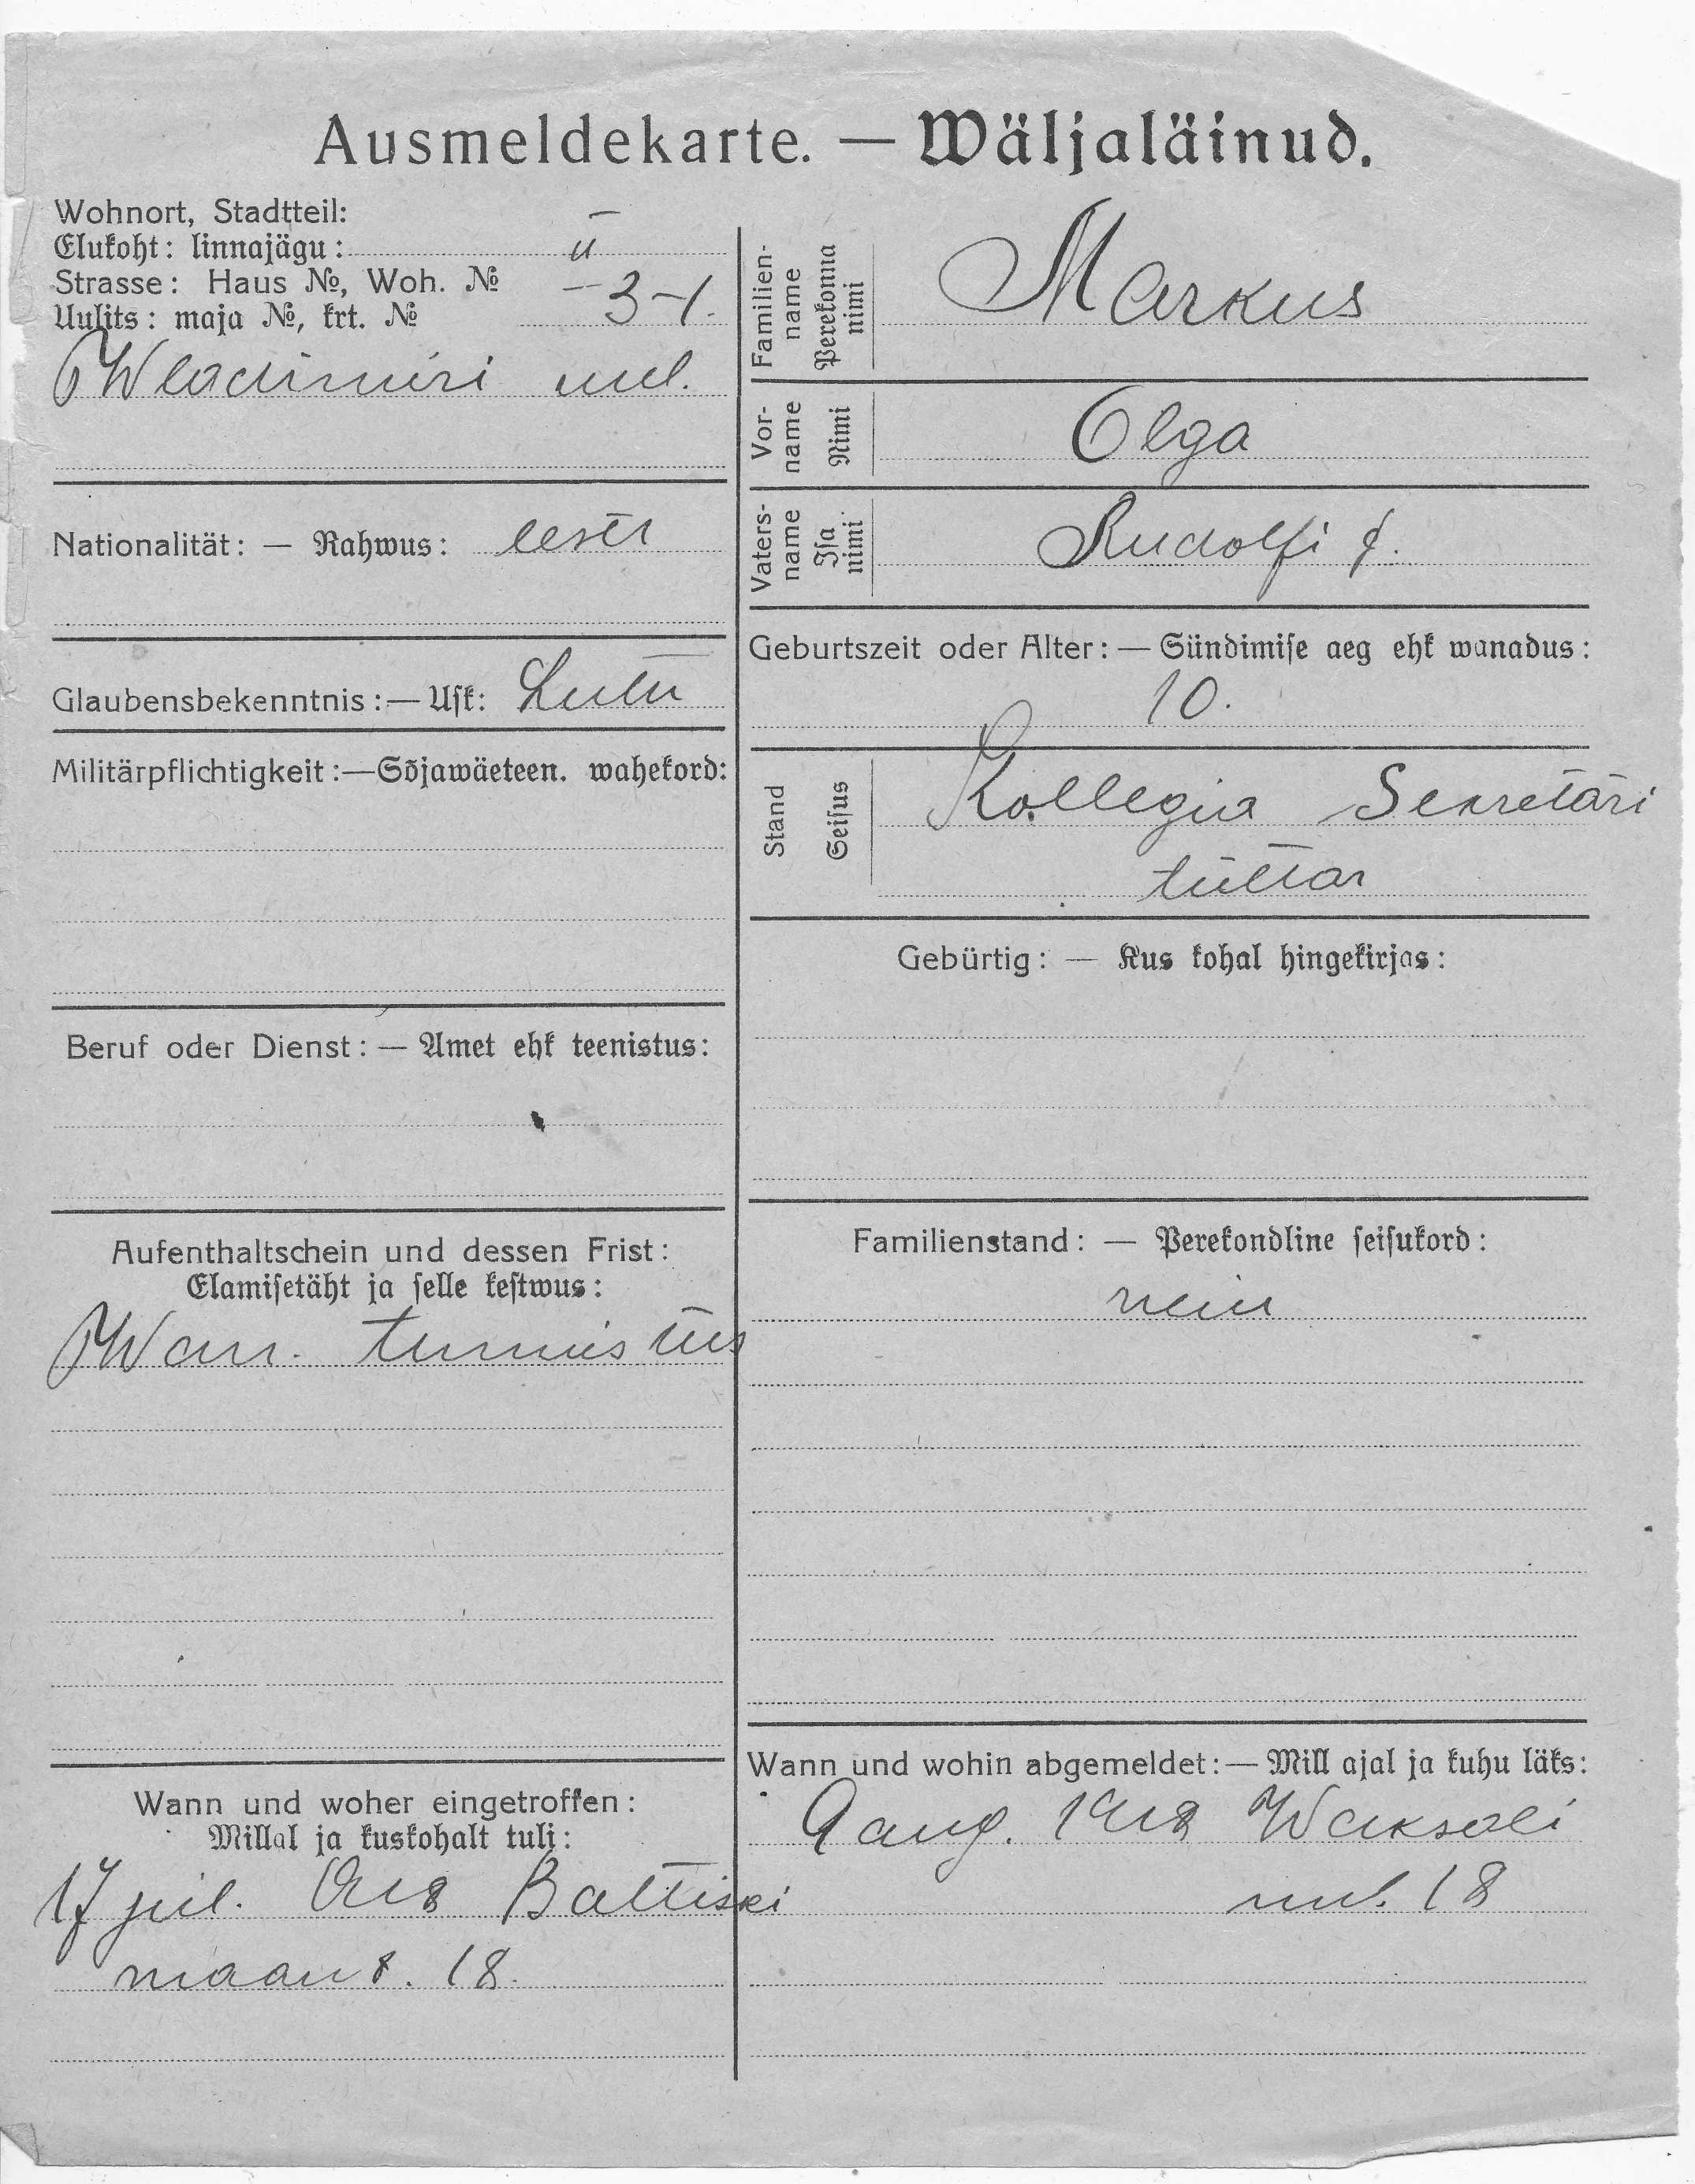 Ausmeldekarte. — Wäljaläinud.
Wohnort, Stadtteil:
Elukoht: linnajägu: II
Strasse: Haus №, Woh. №
Uulits: maja №, krt. № 3-1.
Wladimiri uul.
Nationalität: — Rahwus: eesti
Glaubensbekenntnis: — Usk: Lutu
Militärpflichtigkeit: — Sõjawäeteen. wahekord:
Beruf oder Dienst: — Amet ehk teenistus:
Aufenthaltschein und dessen Frist:
Elamisetäht ja selle kestwus:
Wan. tunnistus
Wann und woher eingetroffen:
Millal ja kuskohalt tuli:
17 juil. 1918 Baltiski
maant. 18.
Familien-name Perekonna nimi Markus
Vor-name Nimi Olga
Vaters-name Isa nimi Rudolfi t.
Geburtszeit oder Alter: — Sündimise aeg ehk wanadus:
10.
Stand Seisus Kollegia Sekretäri
tüttar
Gebürtig: — Kus kohal hingekirjas:
Familienstand: — Perekondline seisukord:
neiu
Wann und wohin abgemeldet: — Mill ajal ja kuhu läks:
9 aug. 1918 Waksali
uul. 18